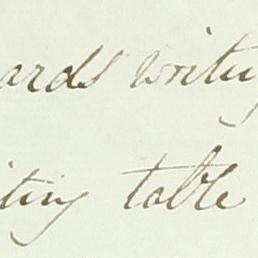 ards writing
iting table